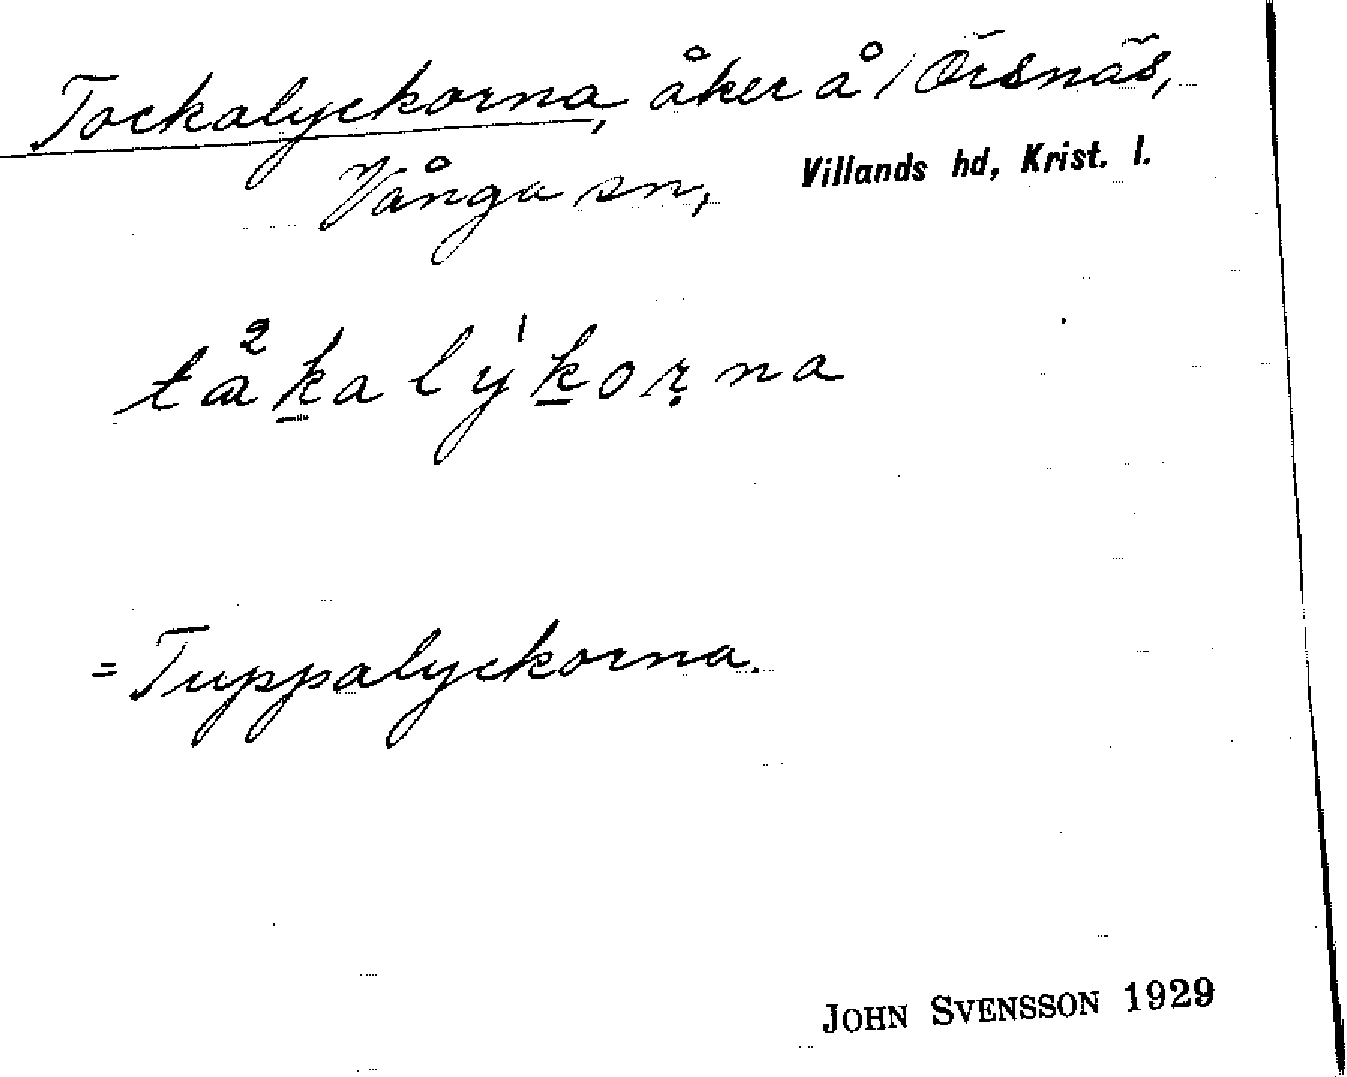 Tockalyckorna, åker å / Örsnäs,
Vånga sn, Villands hd, Krist. l.
tåkalykorna
= Tuppalyckorna.
JOHN SVENSSON 1929